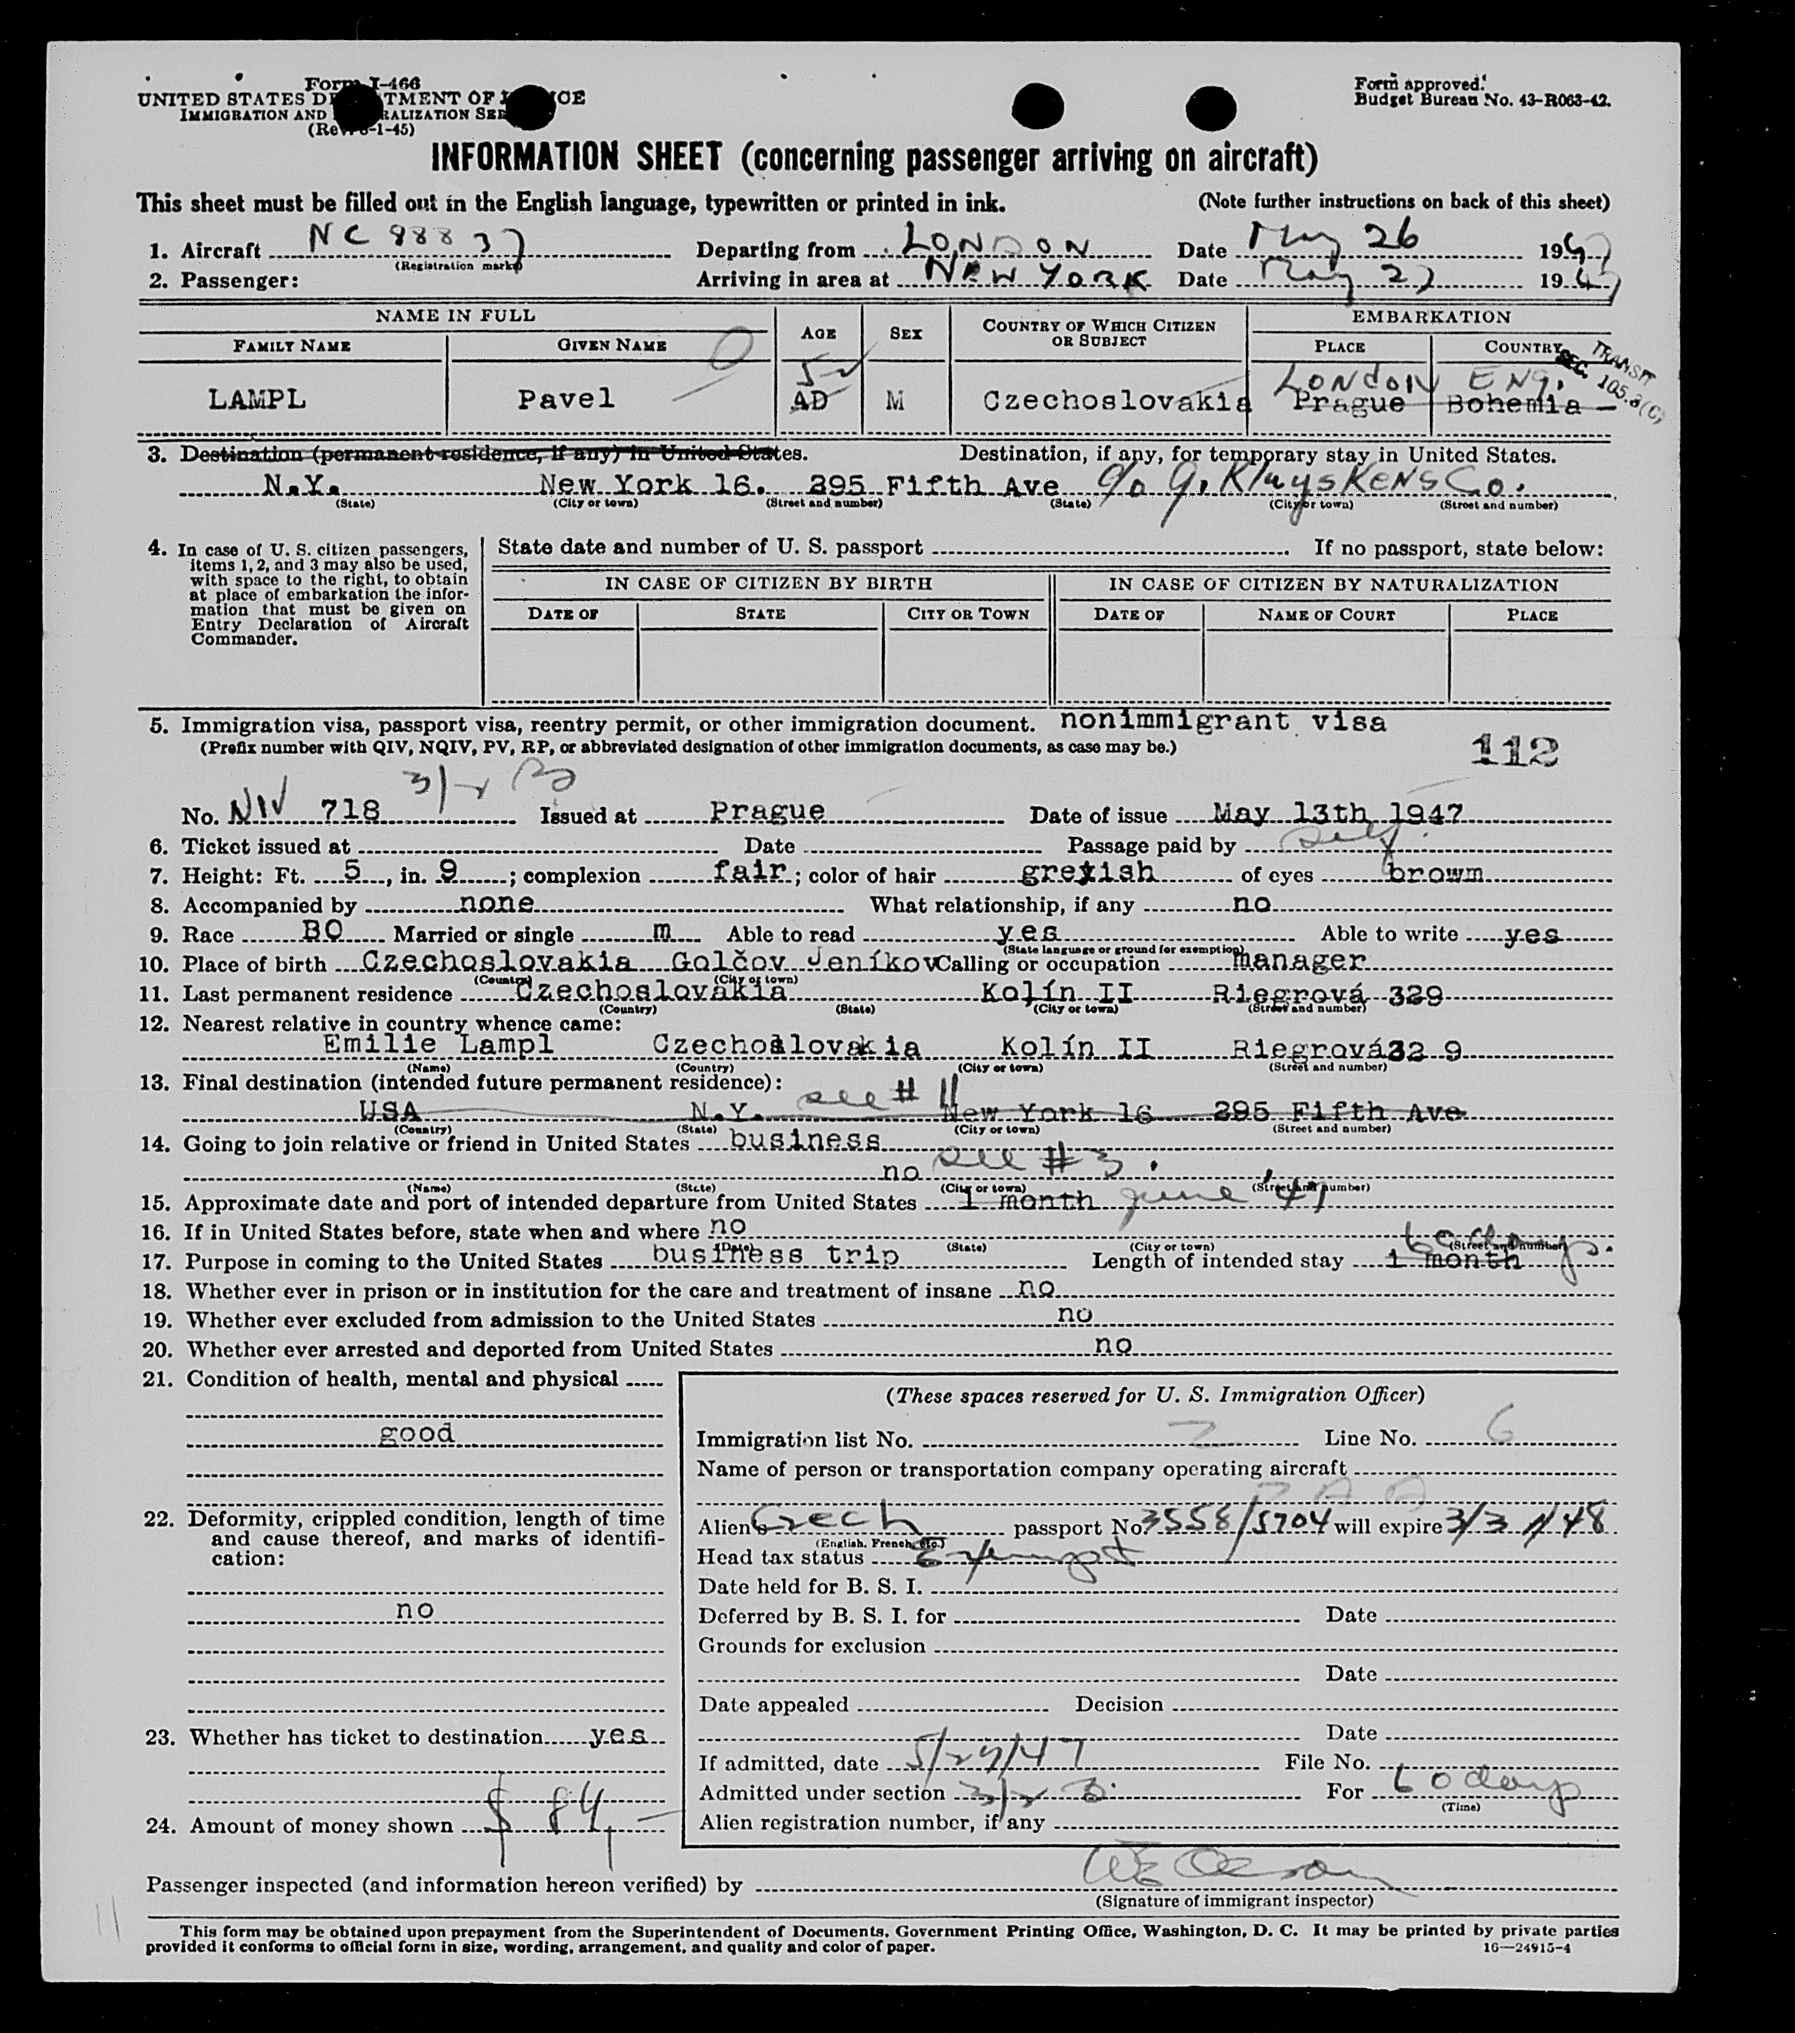 Form I-466
UNITED STATES DEPARTMENT OF JUSTICE
IMMIGRATION AND NATURALIZATION SERVICE
(Rev. 6-1-45)
Form approved.
Budget Bureau No. 43-R063-42.
INFORMATION SHEET (concerning passenger arriving on aircraft)
This sheet must be filled out in the English language, typewritten or printed in ink. (Note further instructions on back of this sheet)
1. Aircraft NC 88837 Departing from LONDON Date May 26 1947
(Registration marks)
2. Passenger: Arriving in area at NEW YORK Date May 27 1947
NAME IN FULL AGE SEX COUNTRY OF WHICH CITIZEN OR SUBJECT EMBARKATION
FAMILY NAME GIVEN NAME PLACE COUNTRY
TRANSIT
SEC. 105.3(C)
52 LONDON ENG.
LAMPL Pavel AD M Czechoslovakia Prague Bohemia
3. Destination (permanent residence, if any) in United States. Destination, if any, for temporary stay in United States.
N.Y. New York 16. 295 Fifth Ave c/o G. Kluyskens Co.
(State) (City or town) (Street and number) (State) (City or town) (Street and number)
4. In case of U. S. citizen passengers, items 1, 2, and 3 may also be used, with space to the right, to obtain at place of embarkation the information that must be given on Entry Declaration of Aircraft Commander.
State date and number of U. S. passport If no passport, state below:
IN CASE OF CITIZEN BY BIRTH IN CASE OF CITIZEN BY NATURALIZATION
DATE OF STATE CITY OR TOWN DATE OF NAME OF COURT PLACE
5. Immigration visa, passport visa, reentry permit, or other immigration document. nonimmigrant visa
(Prefix number with QIV, NQIV, PV, RP, or abbreviated designation of other immigration documents, as case may be.)
112
3/2 B
No. NIV 718 Issued at Prague Date of issue May 13th 1947
6. Ticket issued at Date Passage paid by self
7. Height: Ft. 5, in. 9; complexion fair; color of hair greyish of eyes brown
8. Accompanied by none What relationship, if any no
9. Race BO Married or single m Able to read yes Able to write yes
(State language or ground for exemption)
10. Place of birth Czechoslovakia Golčov Jeníkov Calling or occupation manager
(Country) (City or town)
11. Last permanent residence Czechoslovakia Kolín II Riegrová 329
(Country) (State) (City or town) (Street and number)
12. Nearest relative in country whence came:
Emilie Lampl Czechoslovakia Kolín II Riegrová32 9
(Name) (Country) (City or town) (Street and number)
13. Final destination (intended future permanent residence): see # 11
USA N.Y. New York 16 295 Fifth Ave
(Country) (State) (City or town) (Street and number)
14. Going to join relative or friend in United States business
no see # 3.
(Name) (State) (City or town) (Street and number)
15. Approximate date and port of intended departure from United States 1 month June '47
16. If in United States before, state when and where no
(Date) (State) (City or town) (Street and number)
60 days.
17. Purpose in coming to the United States business trip Length of intended stay 1 month
18. Whether ever in prison or in institution for the care and treatment of insane no
19. Whether ever excluded from admission to the United States no
20. Whether ever arrested and deported from United States no
21. Condition of health, mental and physical
good
22. Deformity, crippled condition, length of time and cause thereof, and marks of identification:
no
23. Whether has ticket to destination yes
24. Amount of money shown $ 84,—
(These spaces reserved for U. S. Immigration Officer)
Immigration list No. 2 Line No. 6
Name of person or transportation company operating aircraft
P A A
Alien's Czech passport No. 3558/5704 will expire 3/31/48
(English, French, etc.)
Head tax status Exempt
Date held for B. S. I.
Deferred by B. S. I. for Date
Grounds for exclusion
Date
Date appealed Decision
Date
If admitted, date 5/27/47 File No.
Admitted under section 3/2 B. For 60 days
(Time)
Alien registration number, if any
Passenger inspected (and information hereon verified) by
(Signature of immigrant inspector)
This form may be obtained upon prepayment from the Superintendent of Documents, Government Printing Office, Washington, D. C. It may be printed by private parties
provided it conforms to official form in size, wording, arrangement, and quality and color of paper. 16—24915-4